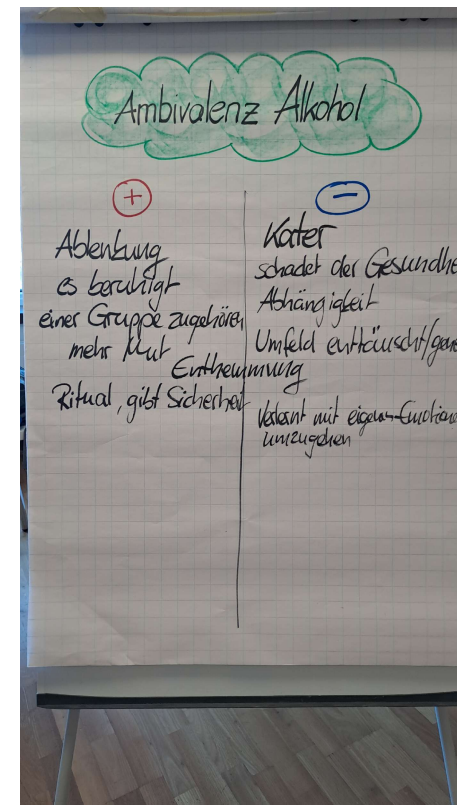 Ambivalenz Alkohol
+
Ablenkung
es beruhigt
einer Gruppe zugehören
mehr Mut
Enthemmung
Ritual, gibt Sicherheit
−
Kater
schadet der Gesundhe
Abhängigkeit
Umfeld enttäuscht/
Verlernt mit eigenen Emotione
umzugehen